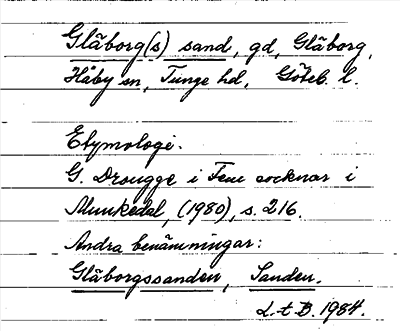 Glāborg(s) sand, gd, Glāborg,
Håby sn, Tunge hd, Göteb. l.
Etymologi.
G. Drougge i Fem socknar i
Munkedal, (1980), s. 216.
Andra benämningar:
Glāborgssanden, Sanden.
L. t B. 1984.